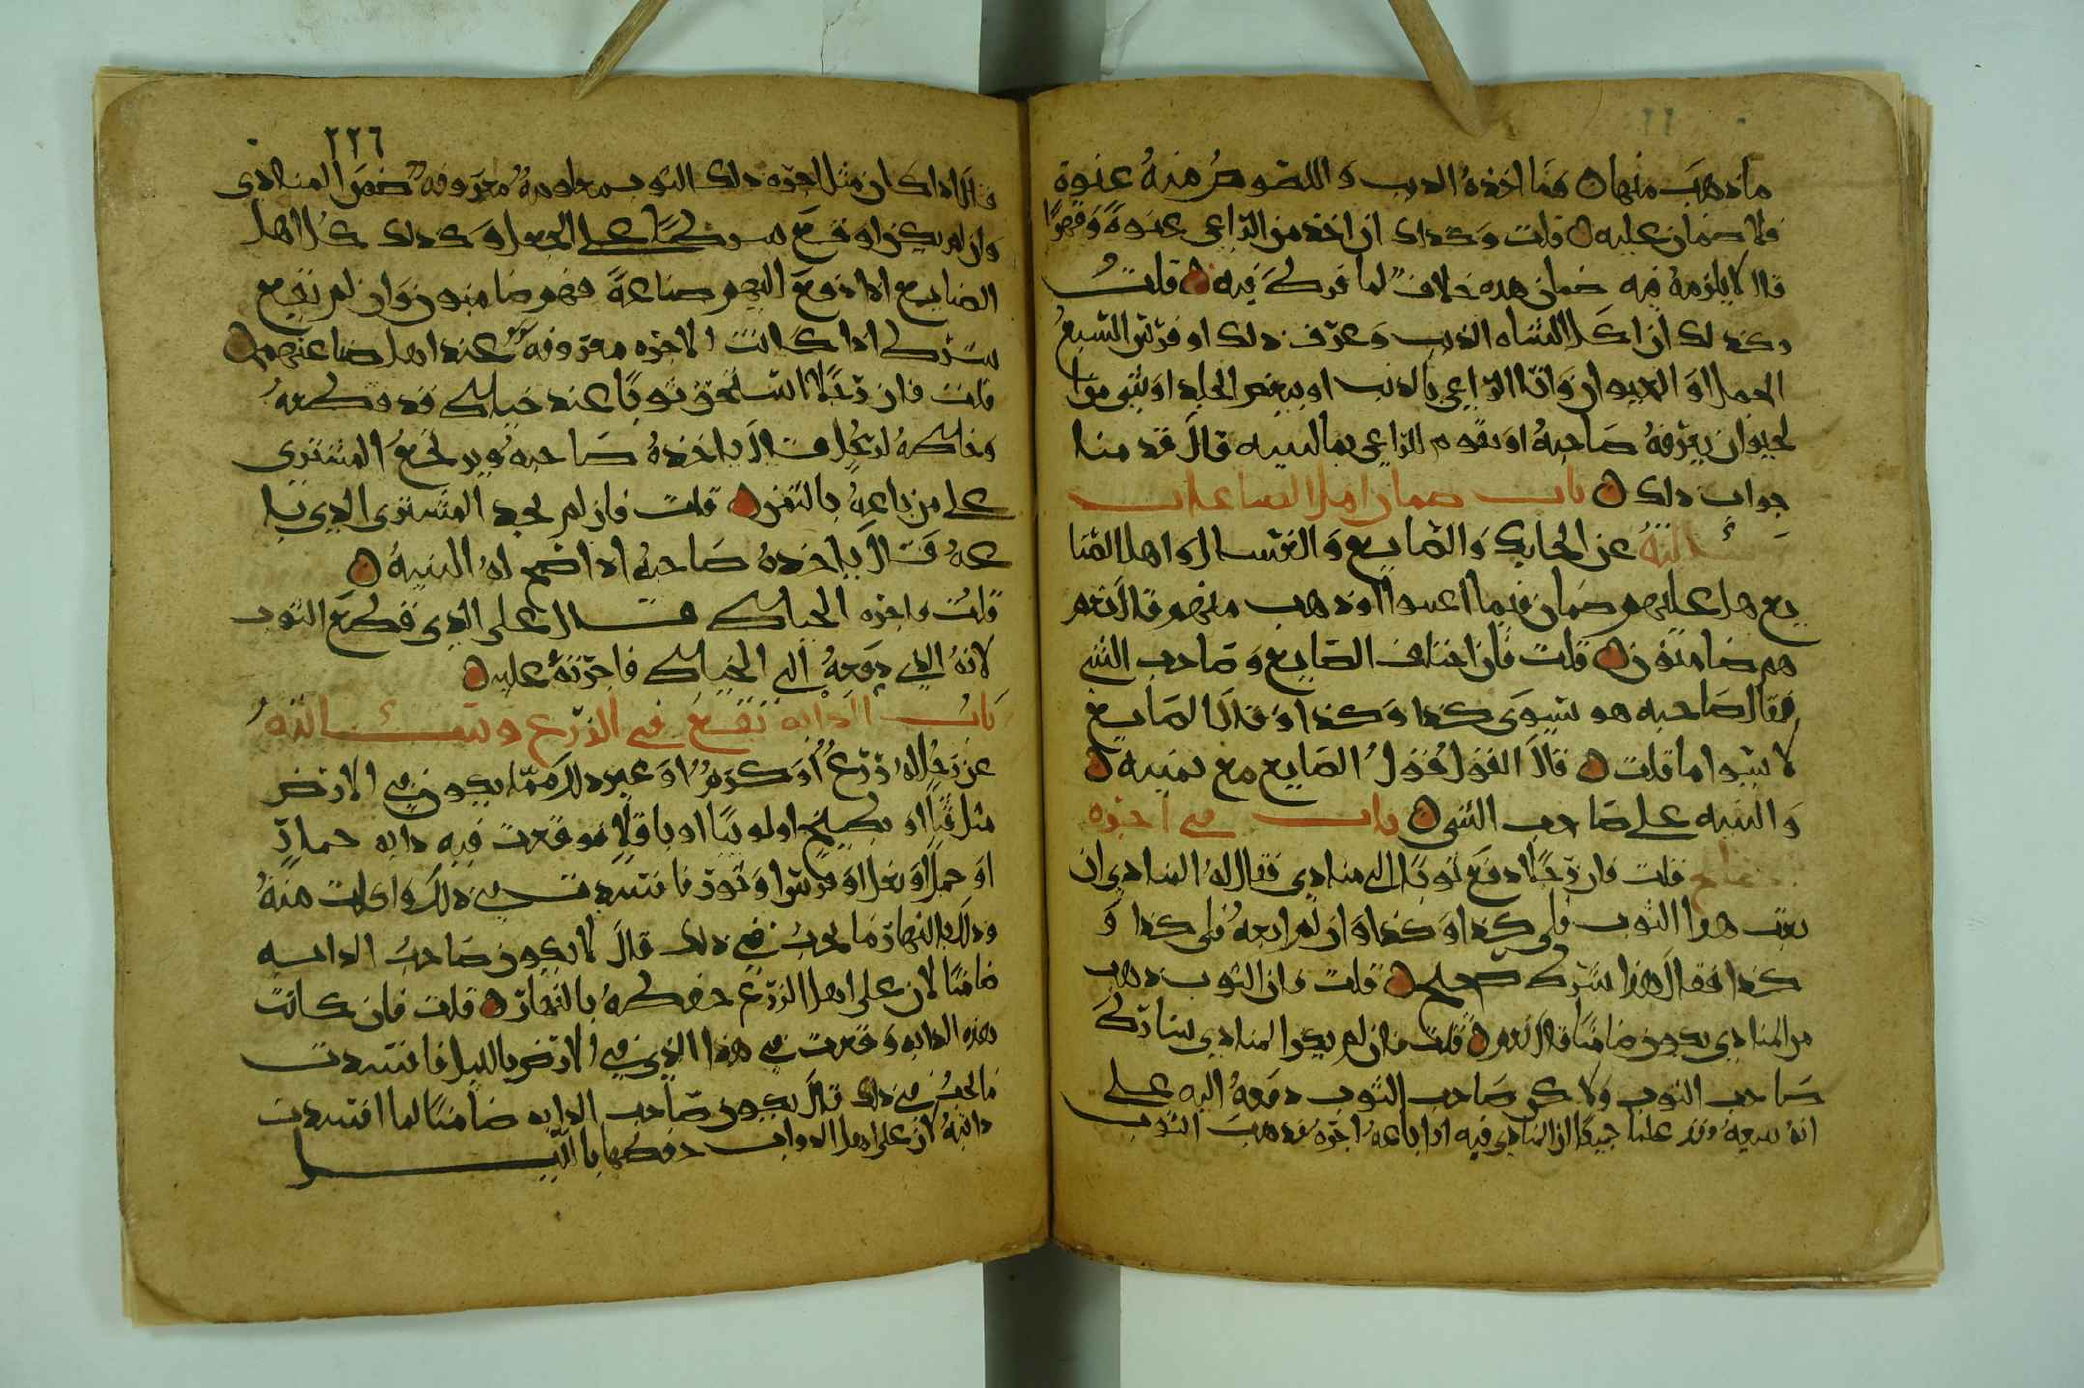 ما دهب منها ۝ وما اخذه الديب و اللصوص منه عنوة
فلا ضمان عليه ۝ قلت وكذلك ان اخذ من الراعي عنوة وقهرا
قال لا يلزمه فيه ضمان هده خلاف لما فرط فيه ۝ قلت
وكذلك ان اكل الشاه الذيب وعرف ذلك او فرس السبع
الحمل او الحيوان واتا الراعي بالدنب او ببعض الجلد او بشي من ا
لحيوان يعرفه صاحبه او يقوم للراعي بها البينه قال قد مضا
جواب ذلك ۝ باب ضمان اهل الصناعات
سالته عن الحايك والصايغ والغسال واهل الصنا
يع هل عليهم ضمان فيما اعسوا او ذهب منهم قال نعم
هم ضامنون ۝ قلت فان اختلف الصايغ وصاحب الشي
فقال صاحبه هو يسوى كذا وكذا وقال الصايغ
لا يسوا ما قلت ۝ قال القول قول الصايغ مع يمينه ۝
والبينه على صاحب الشي ۝ باب في اجره
قلت فان رجلا دفع ثوبا الى منادي فقال له المنادي ان
بعت هدا الثوب فلي كذا وكذا وان لم ابعه فلي كذا و
كذا فقال هذا شرط صحيح ۝ قلت فان الثوب ذهب
من المنادي يكون ضامنا قال نعم ۝ قلت فان لم يكن المنادي شارط
صاحب الثوب ولاكن صاحب الثوب دفعه اليه على
انه يبيعه وقد علما جميعا ان المنادي فيه اذا باعه اجره فدهب الثوب
٢٢٦
قال اذا كان مثل اجره ذلك الثوب معلومه معروفه ضمن المنادي
وان لم يكن اوقع شرطا على الجعل وكذلك كل اهل
الصنايع اذا دفع اليهم صناعة فهم ضامنون وان لم تقع
شرط اذا كانت الاجره معروفه عند اهل صناعتهم ۝
قلت فان رجلا استحق ثوبا عند خياط قد قطعه
وخاطه لرجل قال ياخذه صاحبه ويرجع المشتري
على من باعه بالثمن ۝ قلت فان لم يجد المشتري الدي با
عه قال ياخذه صاحبه اذا صح له البينه ۝
قلت واجره الخياط قال على الذي قطع الثوب
لانه الذي دفعه الى الخياط فاجرته عليه ۝
باب الدابه تقع في الزرع وسالته
عن رجل له زرع او كرم او غير ذلك مما يكون في الارض
مثل قثا او بطيخ او لوبيا او باقلا فوقعت فيه دابه حمار
او جمل او بغل او فرس او ثور فافسدت في ذلك واكلت منه
وذلك بالنهار ما يجب في ذلك قال لا يكون صاحب الدابه
ضامنا لان على اهل الزرع حفظه بالنهار ۝ قلت فان كانت
هذه الدابه وقعت في هذا الذي في الارض بالليل فافسدت
ما يجب في ذلك قال يكون صاحب الدابه ضامنا لما افسدت
دابته لان على اهل الدواب حفظها بالليل